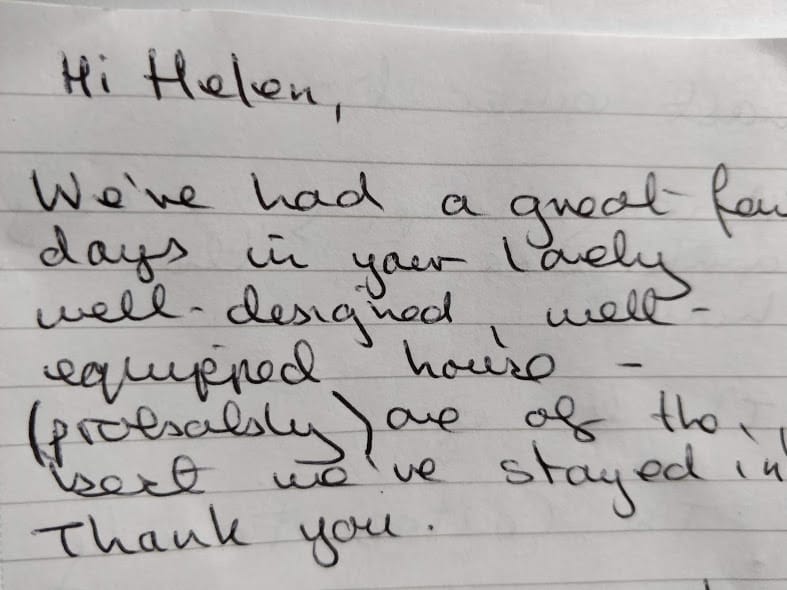 Hi Helen,
We've had a great few
days in your lovely
well-designed, well-
equipped house -
(probably) one of the
best we've stayed in
Thank you.